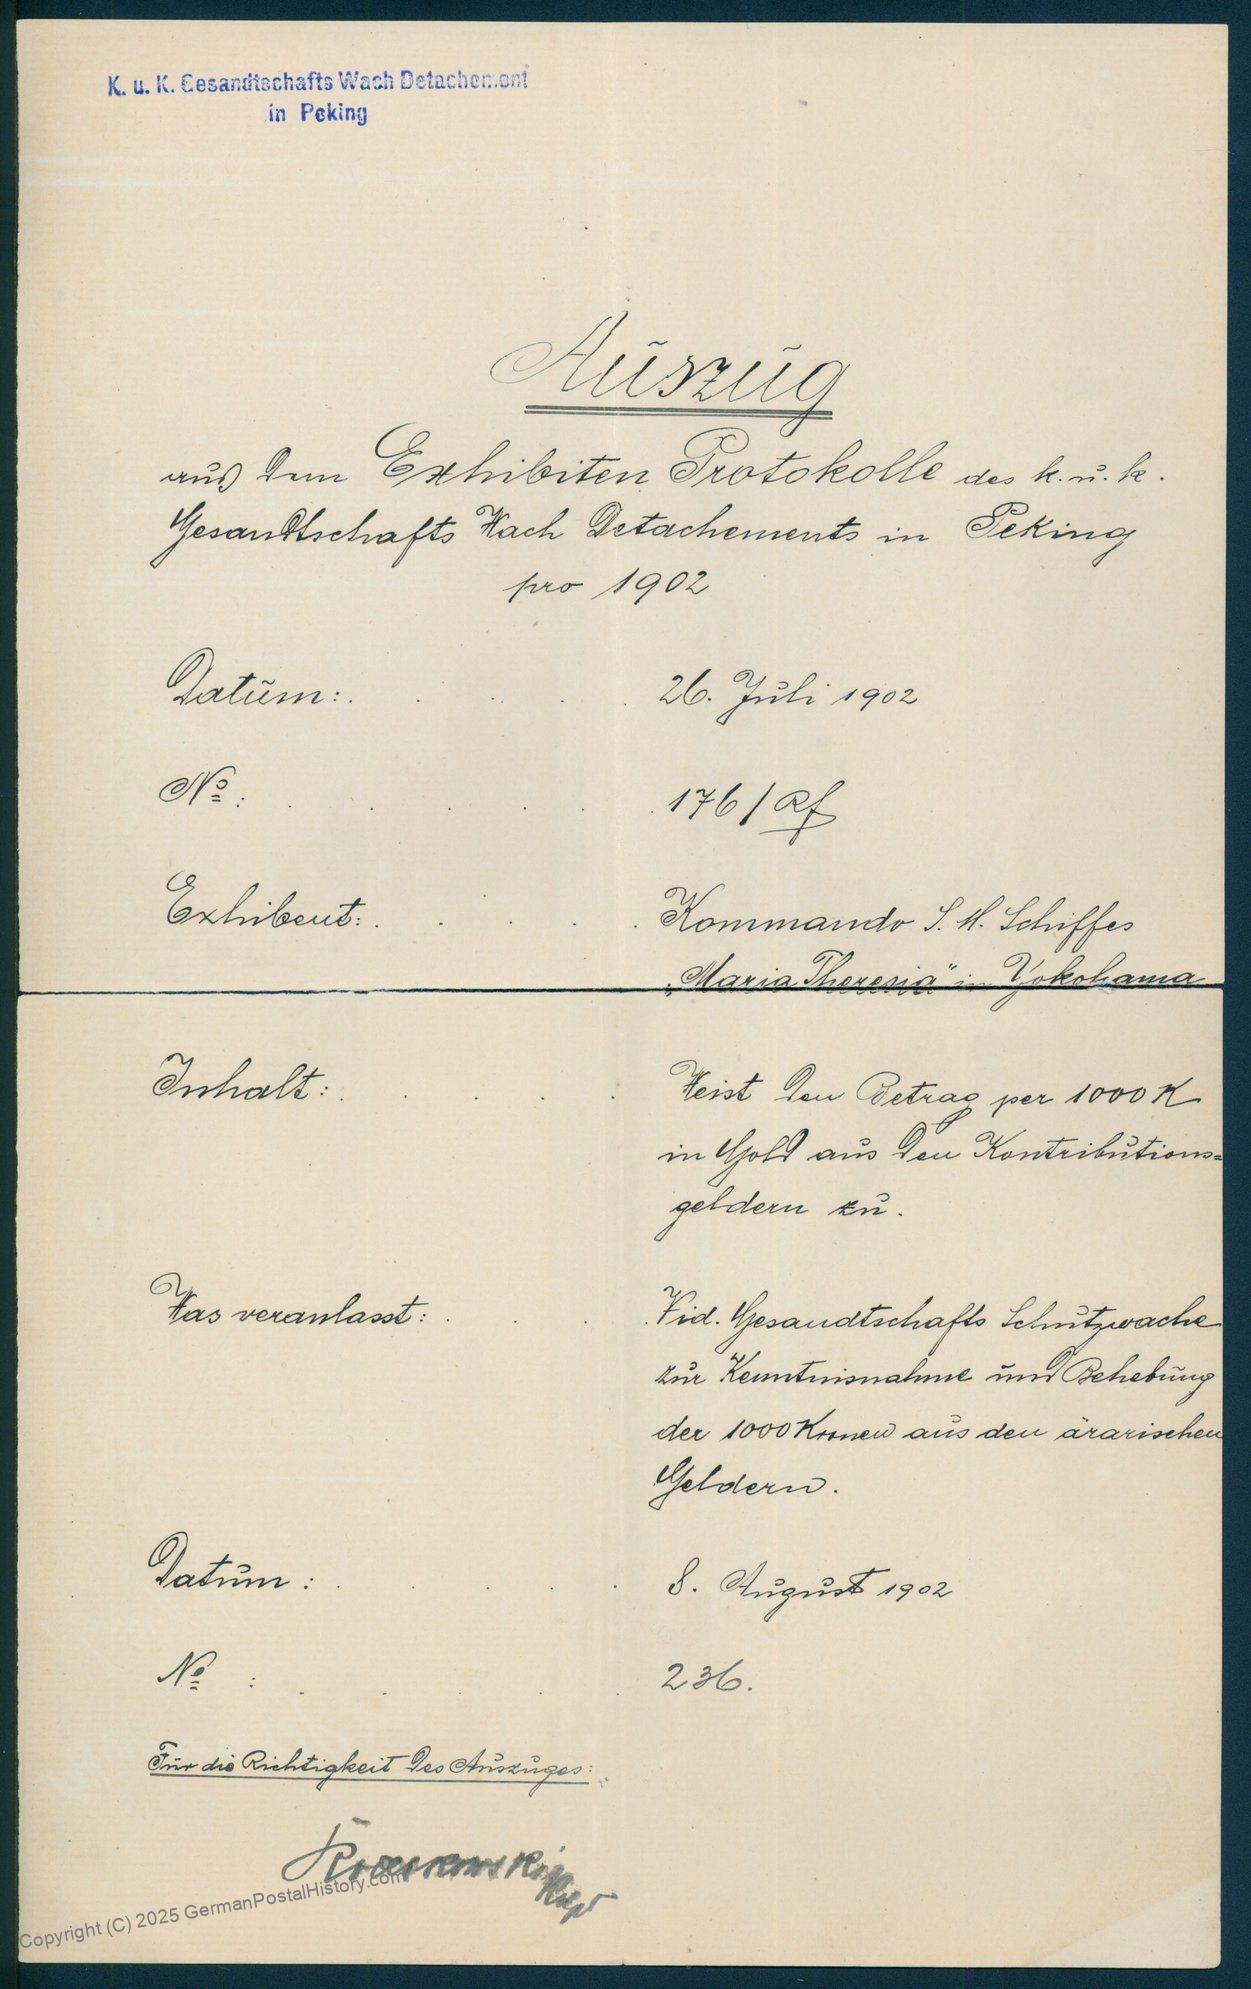 K. u. K. Gesandtschafts Wach Detachement
in Peking
Auszug
aus dem Exhibiten Protokolle des k. u. k.
Gesandtschafts Wach Detachements in Peking
pro 1902
Datum: . . . . . 26. Juli 1902
No: . . . . . 176/Rf
Exhibent: . . . . . Kommando S. M. Schiffes
„Maria Theresia" in Yokohama
Inhalt: . . . . . Weist den Betrag per 1000 K
in Gold aus den Kontributions=
geldern zu.
Was veranlasst: . . . . Vid. Gesandtschafts Schutzwache
zur Kenntnisnahme und Behebung
der 1000 Kronen aus den ärarischen
Geldern.
Datum: . . . . 8. August 1902
No : . . . . . 236.
Für die Richtigkeit des Auszuges:
Copyright (C) 2025 GermanPostalHistory.com